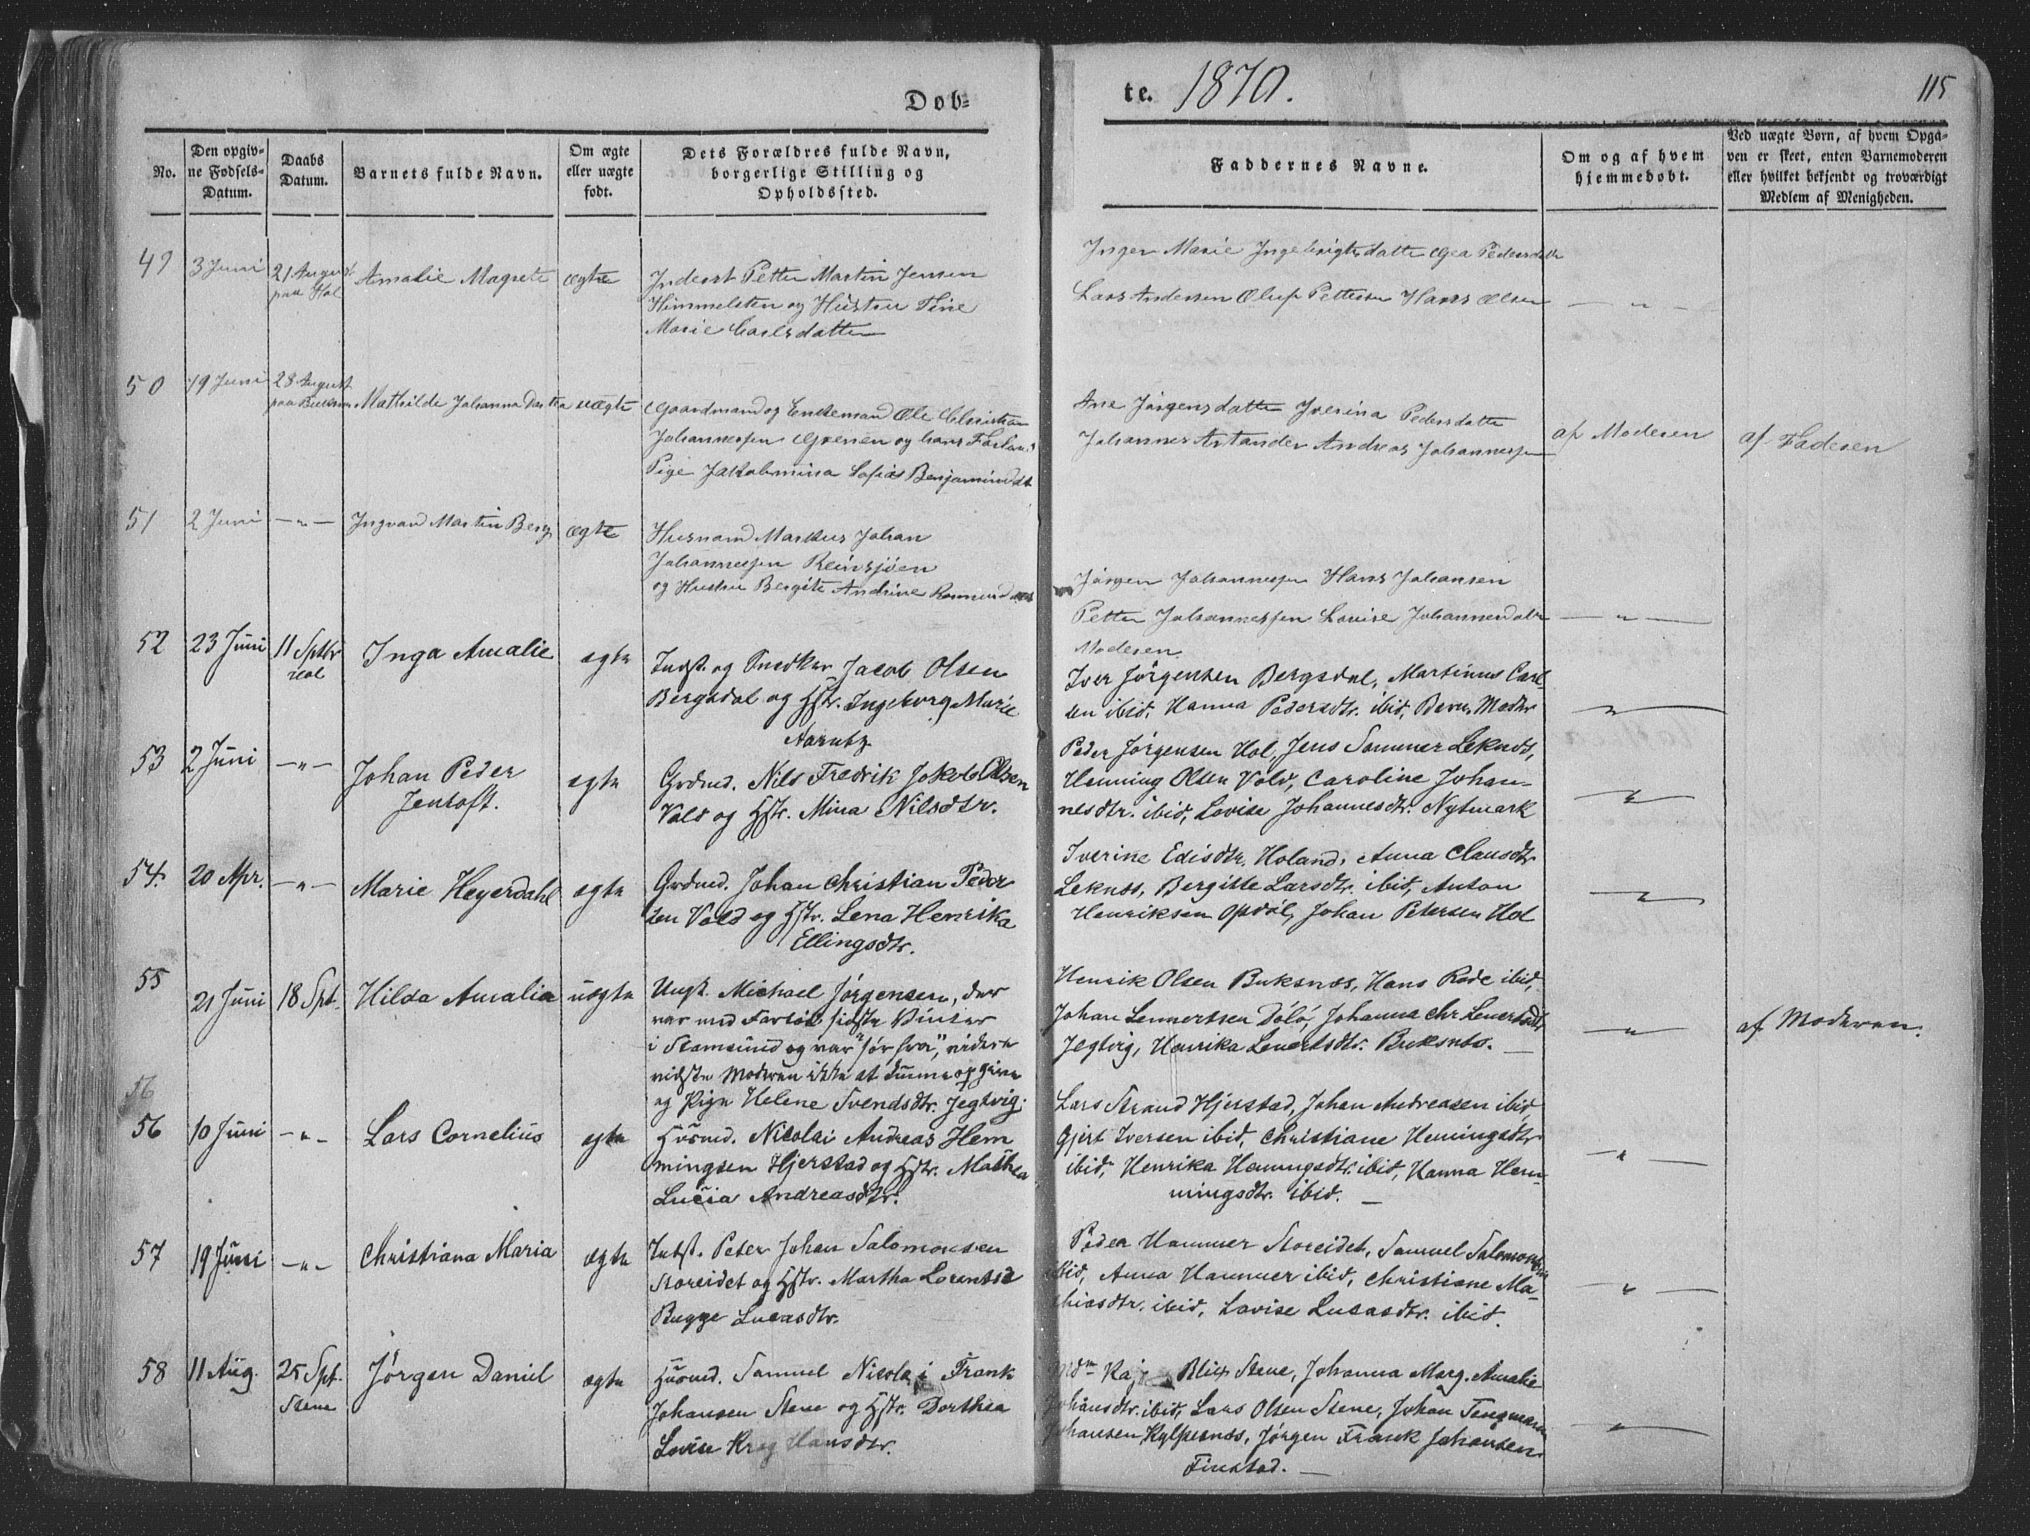 Døb-
te. 1870.
115
No.
Den opgiv-
ne Fødsels-
Datum.
Daabs
Datum.
Barnets fulde Navn.
Om ægte
eller uægte
født.
Dets Forældres fulde Navn,
borgerlige Stilling og
Opholdssted.
Faddernes Navne.
Om og af hvem
hjemmedøbt.
Ved uægte Børn, af hvem Opga-
ven er skeet, enten Barnemoderen
eller hvilket bekjendt og troværdigt
Medlem af Menigheden.
49
3 Juni
21 August
paa Hol
Amalie Magrete
ægte
Inderst Petter Martin Jensen
Himmelsten og Hustru Tine
Marie Carlsdatter
Inger Marie Ingebrigtsdatte Gea Pedersdatte
Lars Andersen Oluf Pettersen Hans Olsen
— " —
50
19 Juni
28 August
paa Buksnes
Mathilde Johanna Dortea
uægte
Gaardmand og Enkemand Ole Christian
Johannessen Grenen og hans
Pige Jakobmina Sofias Benjamindt
Ane Jørgensdatte Iverina Pedersdatte
Johannes Artander Andreas Johannessen
af Moderen
af Faderen
51
2 Juni
— " —
Ingvar Martin Berg
ægte
Husmand Markus Johan
Johannessen Reinsjøen
og Hustru Bergite Andrine
Jørgen Johannessen Hans Johansen
Petter Johannessen Lovise Johannesdatte
Moderen
— " —
52
23 Juni
11 Sptbr
Hol
Inga Amalie
egte
Indst. og Snedker Jacob Olsen
Bergsdal og Hstr. Ingeborg Marie
Aarntz
Iver Jørgensen Bergsdal, Martinus Carl-
sen ibid, Hanna Pedersdtr. ibid, Barn. Moder
— " —
53
2 Juni
— " —
Johan Peder
Jentoft.
egte
Grdmd. Nils Fredrik Jakob Olsen
Vold og Hstr. Mina Nilsdtr.
Peder Jørgensen Hol, Jens Sommer Leknes,
Henning Olsen Vold, Caroline Johan-
nesdtr. ibid, Lovise Johannesdtr. Nytmark
— " —
54.
20 Apr.
— " —
Marie Heyerdahl
egte
Grdmd. Johan Christian Peder
sen Vold og Hstr. Lena Henrika
Ellingsdtr.
Iverine Edisdtr. Holand, Anna Clausdtr
Leknes, Bergitte Larsdtr. ibid, Anton
Henriksen Opdøl, Johan Petersen Hol
— " —
55
21 Juni
18 Spt.
Hilda Amalia
uegte
Ungk. Michael Jørgensen, der
var med Fartøi sidste Vinter
i Stamsund og var "sør fra", videre
vidste Moderen ikke at kunne opgive
og Pige Helene Svendsdtr. Jegtvig.
Henrik Olsen Buksnes, Hans Rode ibid,
Johan Lennertsen Dølø, Johanna Chr. Lenertsdtr
Jegtvig, Henrika Lenertsdtr. Buksnes. —
— " —
af Moderen.
56
56
10 Juni
— " —
Lars Cornelius
egte
Husmd. Nicolai Andreas Hem
mingsen Hjerstad og Hstr. Mathea
Lucia Andreasdtr.
Lars Strand Hjerstad, Johan Andreasen ibid,
Gjert Iversen ibid, Christiane Hemingsdtr
ibid, Henrika Hemingsdtr. ibid, Hanna Hem-
mingsdtr. ibid. —
— " —
57
19 Juni
— " —
Christiana Maria
ægte
Indst. Peter Johan Salomonsen
Storeidet og Hstr. Martha Lorentse
Bugge Lucasdtr.
Peder Hammer Storeidet, Samuel Salomonsen
ibid, Anna Hammer ibid, Christiane Ma-
thiasdtr. ibid, Lovise Lucasdtr. ibid.
— " —
58
11 Aug.
25 Spt.
Stene
Jørgen Daniel
ægte
Husmd. Samuel Nicolai Frank
Johansen Stene og Hstr. Dorthea
Lovise Krog Hansdtr.
Blix Stene, Johanna Marg. Amalie
Johansdtr. ibid, Lars Olsen Stene, Johan Tengmann
Johansen Kylpesnes, Jørgen Frank Johansen
Finstad. —
— " —